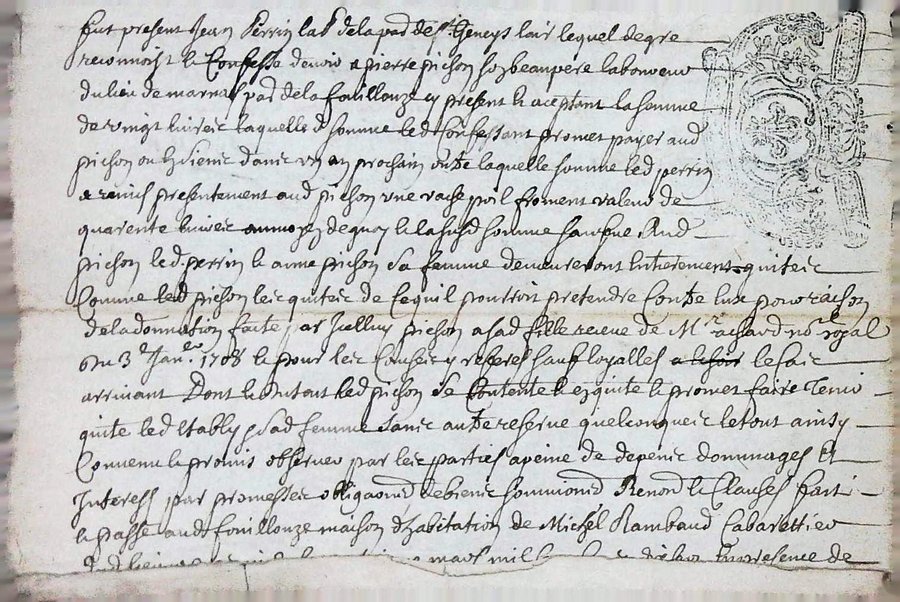 fut present Jean Perrin lab de la par de st Geneys lair lequel de gre
reconnoist & Confesse devoir a pierre pichon son beaupere laboureur
du lieu de marnas par de la fouillouze cy present & aceptant la somme
de vingt livres laquelle d somme led Confessant promet payer aud
pichon ou es siens dans un an prochain outre laquelle somme led perrin
a remis presentement aud pichon une vache poil froment valeur de
quarente livres de quoy & la susd somme
pichon led perrin & anne pichon sa femme demeureront entierement quites
Comme led pichon les quite de ce quil pourroit pretendre contre eux pour raison
de la donnation faite par icelluy pichon a sad fille receue de Mr achard nore royal
du 3e Janer 1708 & pour les Causes y referes sauf loyalles le cas
arrivant Dont & du tout led pichon se Contente & quite & promet faire tenir
quite led estably & sad femme sans autre reserve quelconque le tout ainsy
Convenu & promis observer par les parties a peine de depens dommages Et
Interest par promesses obligaons de biens soumions Renons & Clauses fait
& passe aud fouillouze maison d'habitation de Michel Rambaud Cabarettier
mars mil presence de